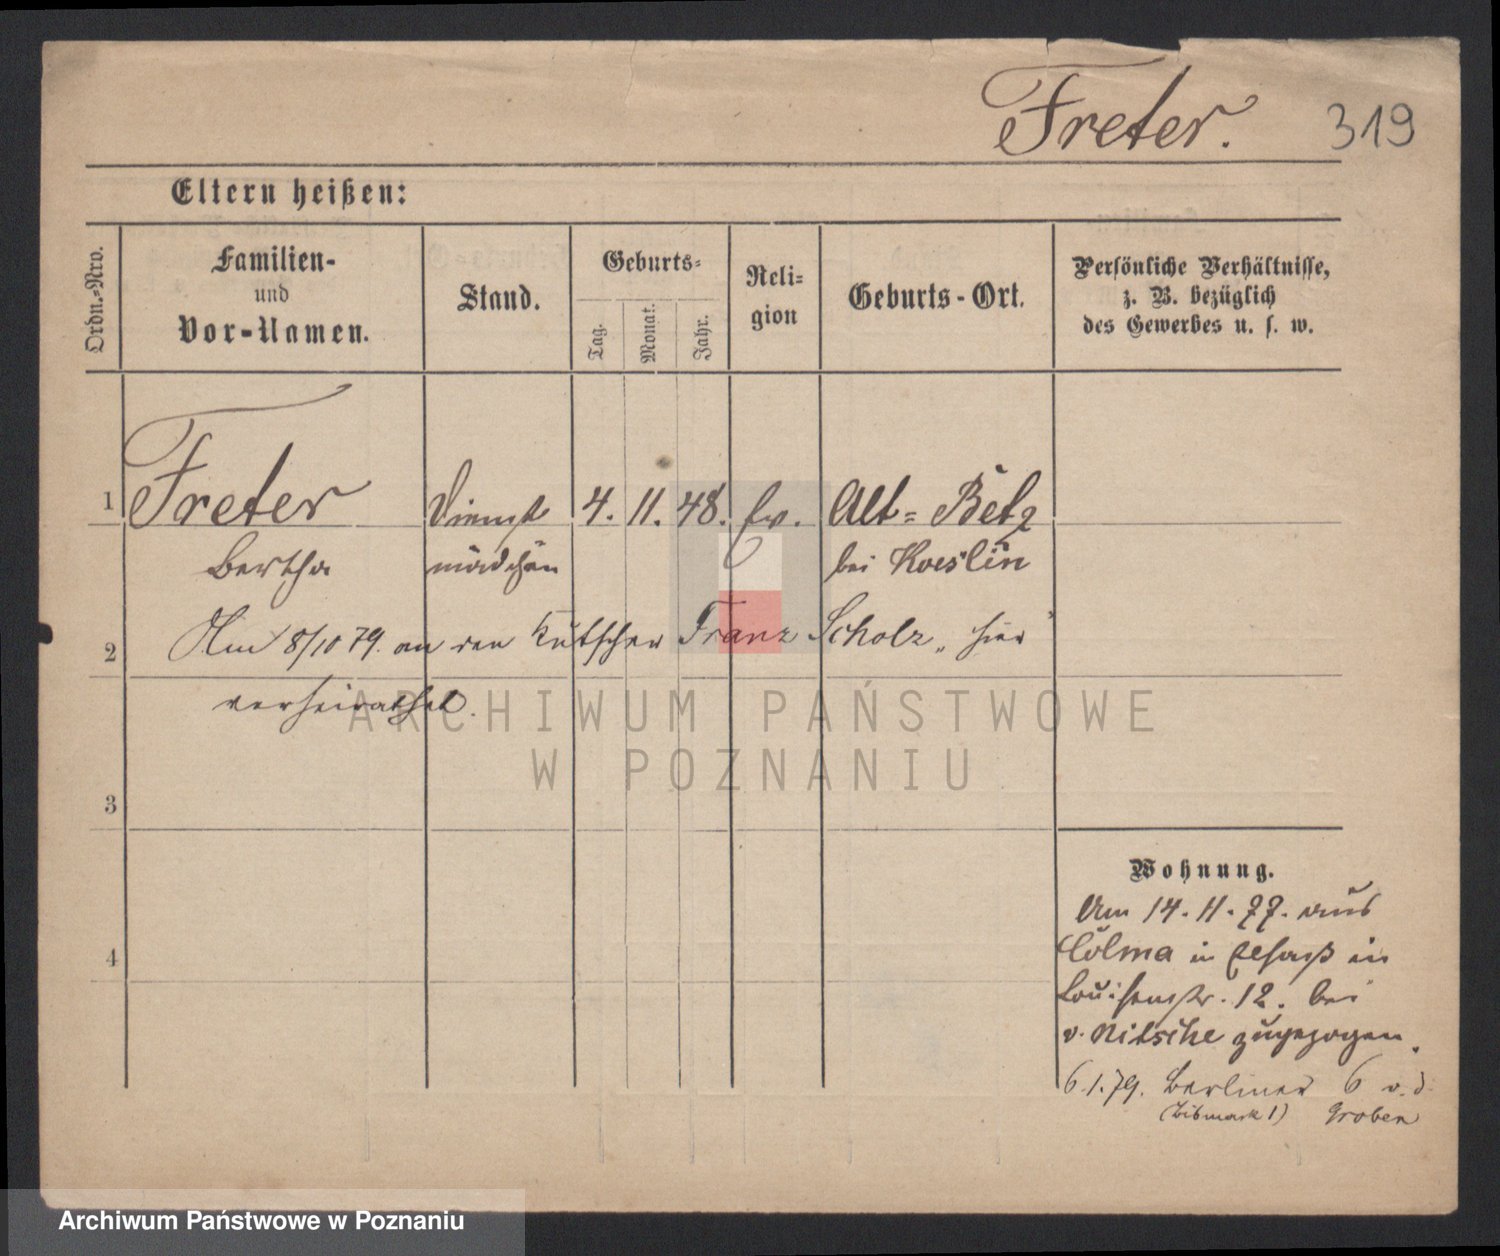 Freter. 319
Eltern heißen:
Ordn.-Nro.
Familien-
und
Vor-Namen.
Stand.
Geburts-
Tag.
Monat.
Jahr.
Reli-
gion
Geburts-Ort.
Persönliche Verhältnisse,
z. B. bezüglich
des Gewerbes u. s. w.
1 Freter Dienst 4. 11. 48. ev. Alt-Betz
Bertha mädchen bei Koeslin
Am 8/10 79. an den Kutscher Franz Scholz, hier
2
verheirathet.
3
4
Wohnung.
Am 14. 11. 77. aus
Colma in Elsaß in
Louisenstr. 12. bei
v. Nitsche zugezogen.
6.1.79. Berliner 6 v. d.
(Bismark 1) Groben
ARCHIWUM PAŃSTWOWE
W POZNANIU
Archiwum Państwowe w Poznaniu